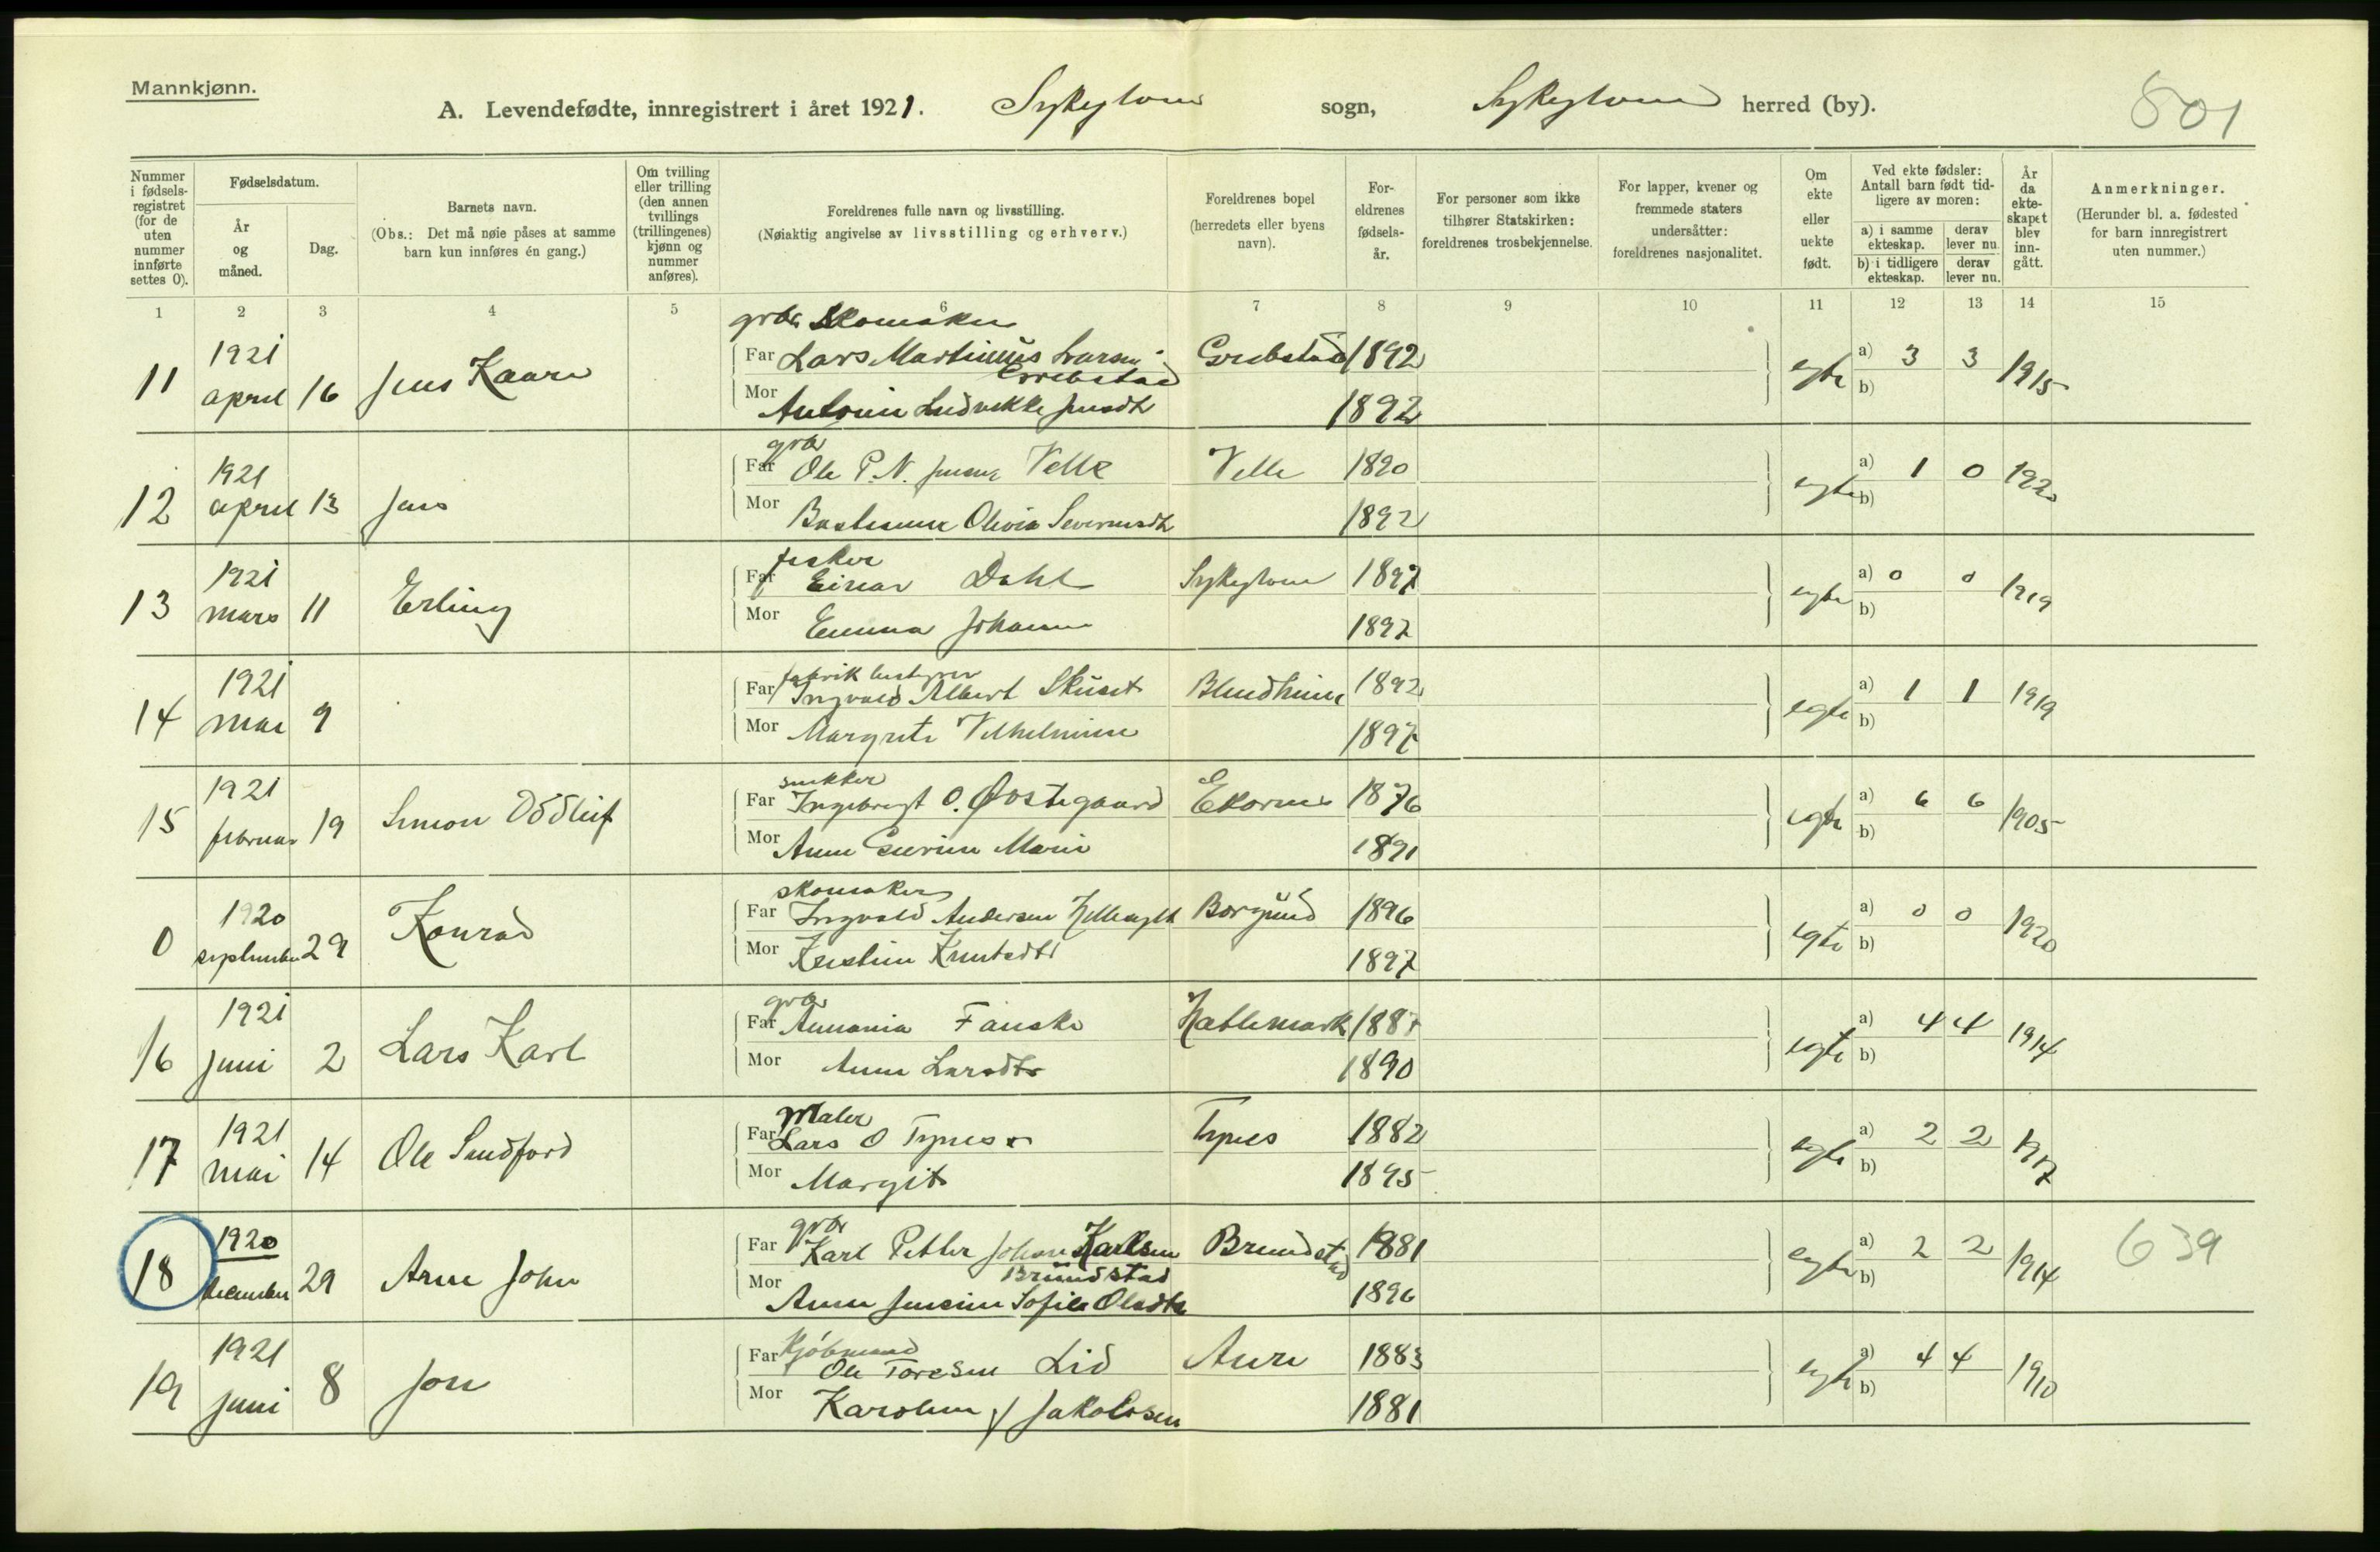 Mannkjønn.
A. Levendefødte, innregistrert i året 1921. Sykeylven sogn, Sykeylven herred (by).
801
Nummer i fødsels-registret (for de uten nummer innførte settes 0).
Fødselsdatum.
År og måned.
Dag.
Barnets navn.
(Obs.: Det må nøie påses at samme barn kun innføres én gang.)
Om tvilling eller trilling (den annen tvillings (trillingenes) kjønn og nummer anføres).
Foreldrenes fulle navn og livsstilling.
(Nøiaktig angivelse av livsstilling og erhverv.)
Foreldrenes bopel (herredets eller byens navn).
For-eldrenes fødsels-år.
For personer som ikke tilhører Statskirken: foreldrenes trosbekjennelse.
For lapper, kvener og fremmede staters undersåtter: foreldrenes nasjonalitet.
Om ekte eller uekte født.
Ved ekte fødsler: Antall barn født tid-ligere av moren:
a) i samme ekteskap. derav lever nu.
b) i tidligere ekteskap. derav lever nu.
År da ekte-skapet blev inn-gått.
Anmerkninger.
(Herunder bl. a. fødested for barn innregistrert uten nummer.)
1 2 3 4 5 6 7 8 9 10 11 12 13 14 15
gbr Skomaker
11 1921 april 16 Jens Kaare Far Lars Martinius Larsen Grebstad Grebstad 1892 egte a) 3 3 1915
Mor Antonie Ludvikke Jensdtr 1892 b)
gbr
12 1921 april 13 Jens Far Ole P. N. Jensen Velle Velle 1890 egte a) 1 0 1920
Mor Bastianne Olivia Severinsdtr 1892 b)
fisker
13 1921 mars 11 Erling Far Einar Dahl Sykeylven 1897 egte a) 0 0 1919
Mor Emma Johanne 1897 b)
fabrik bestyrer
14 1921 mai 9 Far Ingvald Albert Skuset Blindheim 1892 egte a) 1 1 1919
Mor Margrete Vilhelmine 1897 b)
snekker
15 1921 februar 19 Simon Oddleif Far Ingebregt O. Østegaard Ekornes 1876 egte a) 6 6 1905
Mor Anne Marie 1891 b)
skomaker
0 1920 september 29 Konrad Far Ingvald Andersen Hellesylt Borgund 1896 egte a) 0 0 1920
Mor Kristine Knutsdtr 1897 b)
gbr
16 1921 juni 2 Lars Karl Far Annania Fauske Hatlemark 1887 egte a) 4 4 1914
Mor Anne Larsdtr 1890 b)
Maler
17 1921 mai 14 Ole Sindford Far Lars O Tynes Tynes 1882 egte a) 2 2 1917
Mor Margit 1895 b)
gbr
18 1920 december 29 Arne John Far Karl Petter Johan Karlsen Brunstad Brundstad 1881 egte a) 2 2 1914 639
Mor Anne Jensine Sofie Olsdtr 1896 b)
Kjøbmand
19 1921 juni 8 Jon Far Ole Toresen Lid Aure 1883 egte a) 4 4 1910
Mor Karoline f Jakobsen 1881 b)